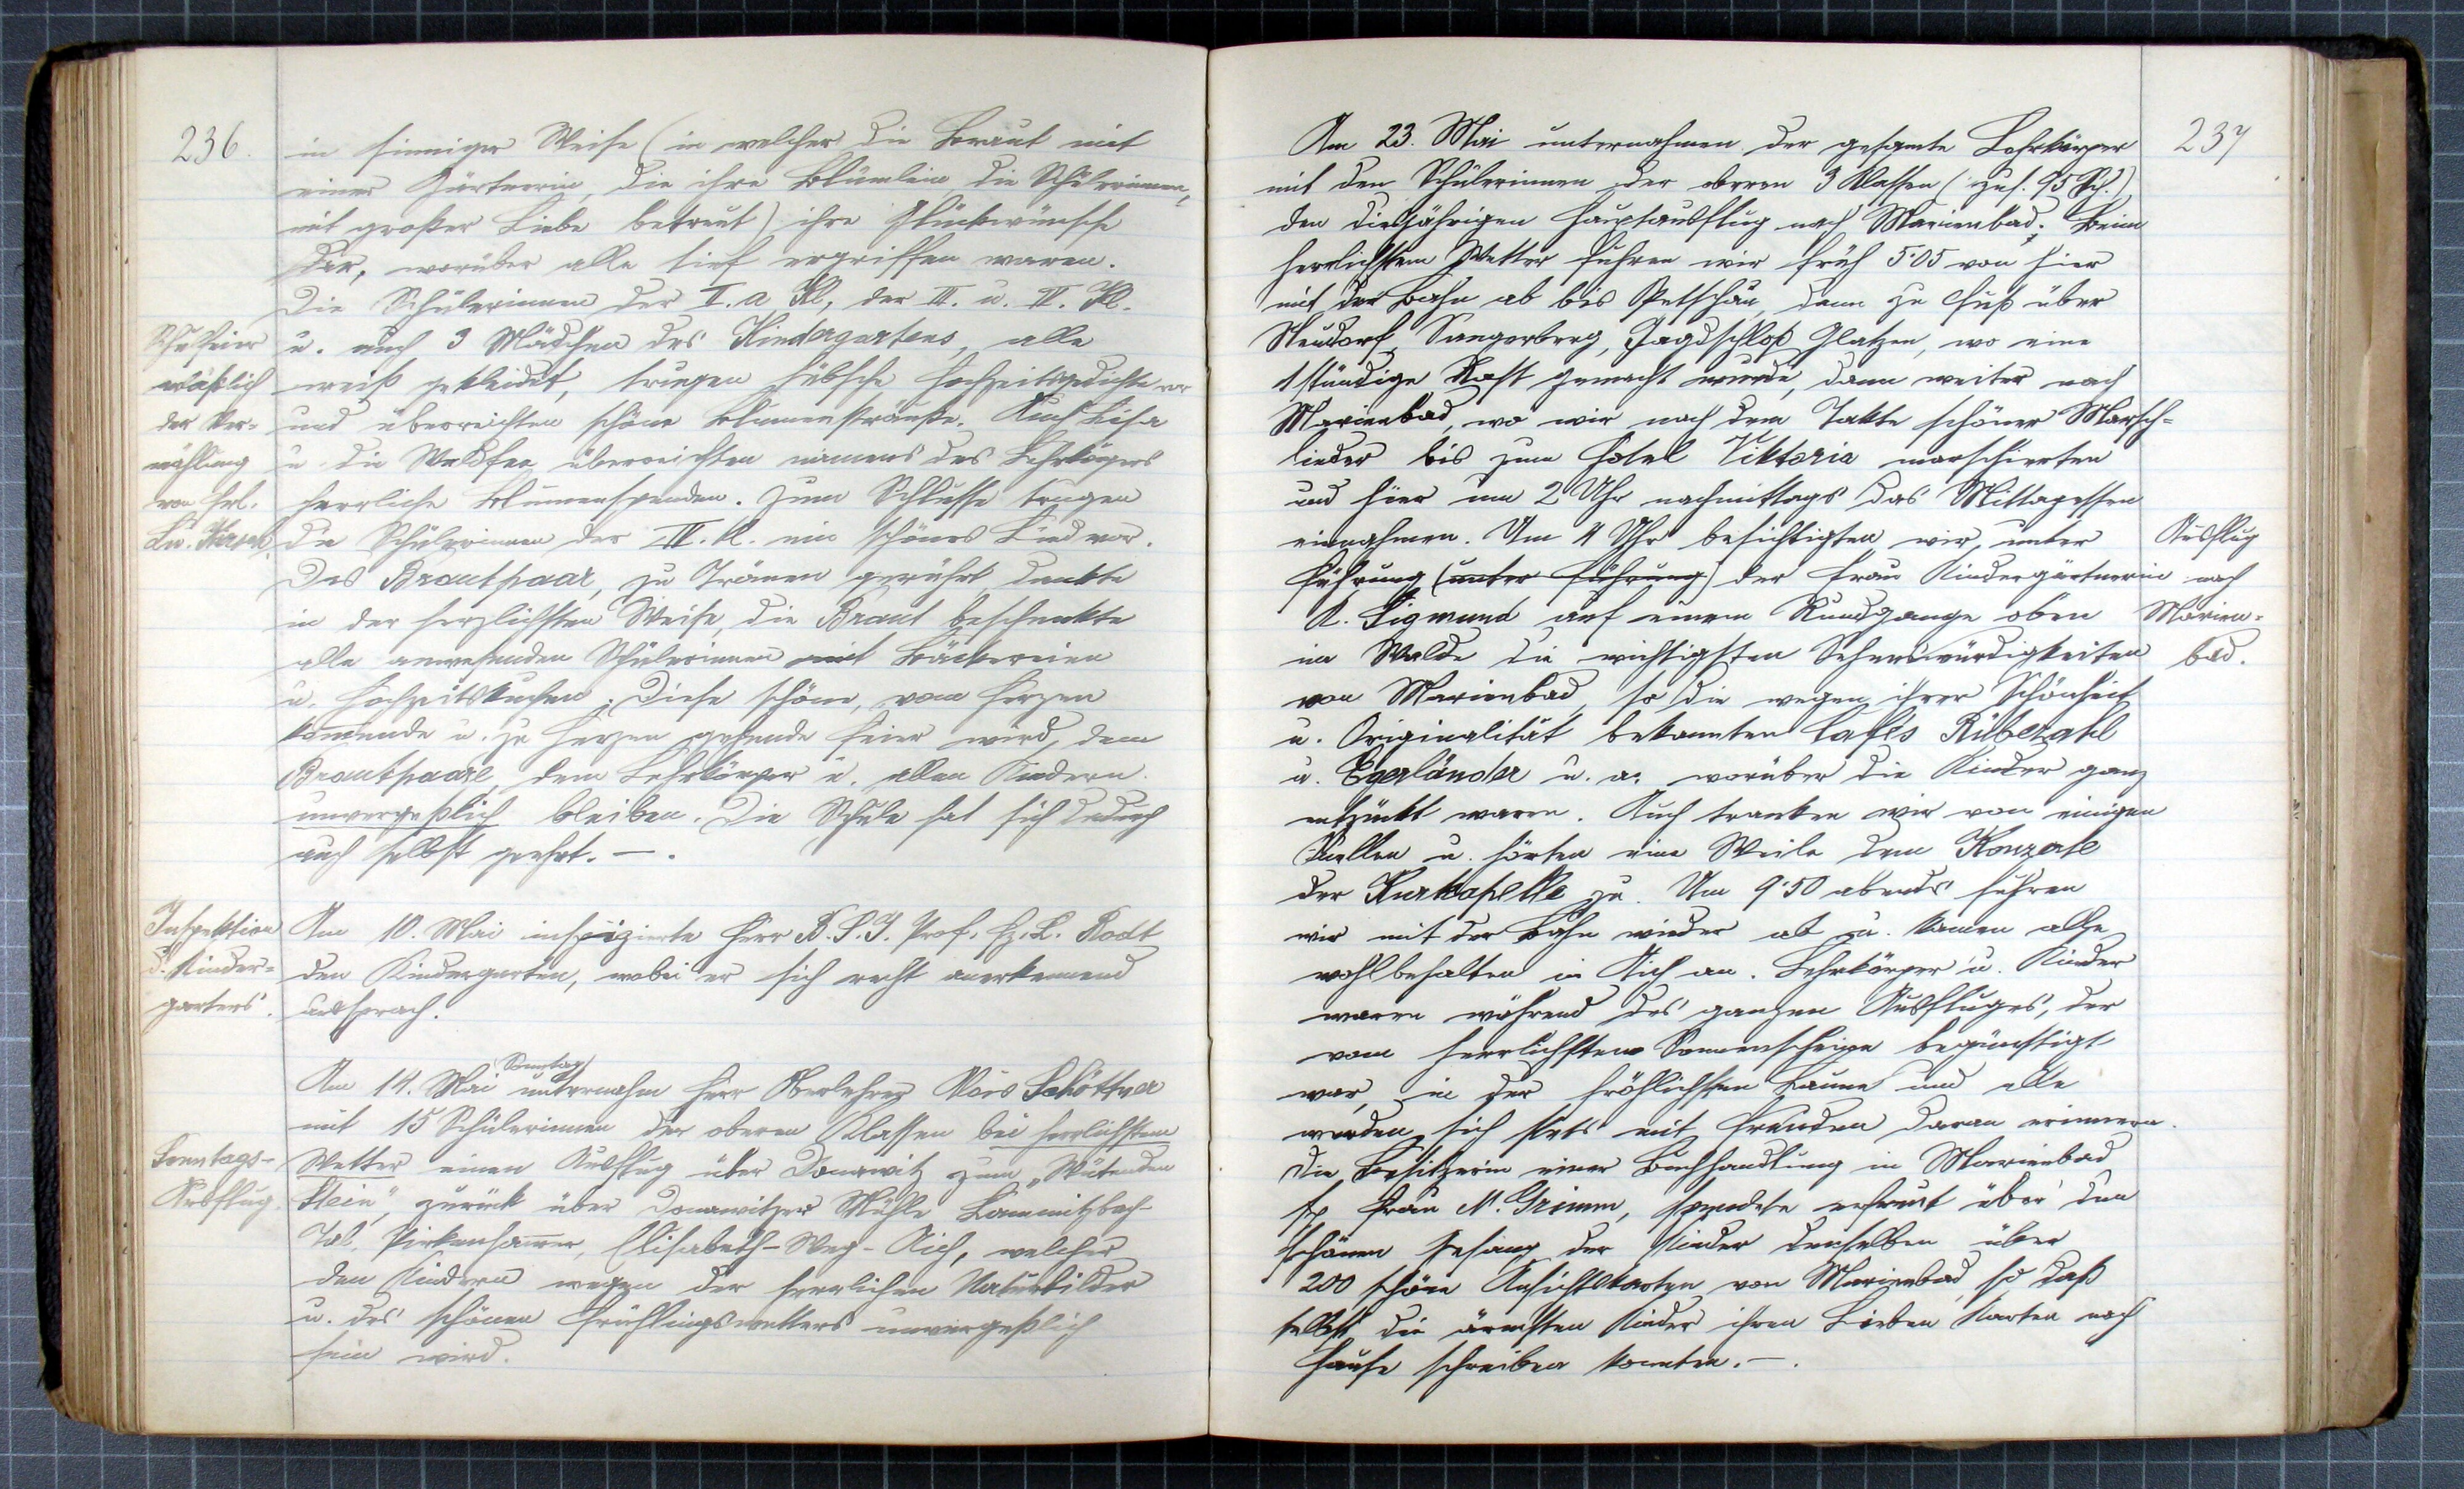 236.
in sinniger Weise (in welcher die Braut mit
einer Gärtnerin, die ihre Blümlein die Schülerinnen,
mit großer Liebe betreut) ihre Glückwünsche
dar, worüber alle tief ergriffen waren.
Die Schülerinnen der I. a Kl, der III. u. IV. Kl.
u. auch 3 Mädchen des Kindergartens, alle
weiß gekleidet, trugen hübsche Hochzeitsgedichte vor
und überreichten schöne Blumensträuße. Auch Lisa
u. die Waldfee überreichten namens des Lehrkörpers
herrliche Blumenspenden. Zum Schlusse trugen
die Schülerinnen der IV. Kl. ein schönes Lied vor.
Das Brautpaar, zu Tränen gerührt dankte
in der herzlichsten Weise, die Braut beschenkte
alle anwesenden Schülerinnen mit Bäckereien
u. Hochzeitskuchen. Diese schöne, vom Herzen
kommende u. zu Herzen gehende Feier wird, dem
Brautpaare, dem Lehrkörper u. allen Kindern
unvergeßlich bleiben. Die Schule hat sich dadurch
auch selbst geehrt. —.
Schulfeier
anläßlich
der Ver-
mählung
von Frl.
Am 10. Mai inspizierte Herr B.S.I. Prof. Hz. L. Rodt
den Kindergarten, wobei er sich recht anerkennend
aussprach.
Inspektion
d. Kinder-
gartens.
Sonntag
Am 14. Mai unternahm Herr Oberlehrer Alois Schöttner
mit 15 Schülerinnen der oberen Klassen bei herrlichsten
Wetter einen Ausflug über Donawitz zum „Wütenden
Stein", zurück über Donawitzer Mühle Lamnitzbach-
Tal, Pirkenhammer, Elisabeth-Weg-Aich, welcher
den Kindern wegen der herrlichen Naturbilder
u. des schönen Frühlingswetters unvergeßlich
sein wird.
Sonntags-
Ausflug
237
Am 23. Mai unternahmen der gesamte Lehrkörper
mit den Schülerinnen der oberen 3 Klassen (zus. 95 Sch.)
den diesjährigen Hauptausflug nach Marienbad. Beim
herrlichsten Wetter fuhren wir früh 5·05 von hier
mit der Bahn ab bis Petschau, dann zu Fuß über
Neudorf, Sangerberg, Jagdschloß Glatzen, wo eine
1 stündige Rast gemacht wurde, dann weiter nach
Marienbad, wo wir nach dem Takte schöner Marsch-
lieder bis zum Hotel Viktoria marschierten
und hier um 2 Uhr nachmittags das Mittagessen
einnahmen. Um 4 Uhr besichtigten wir, unter
Führung (unter Führung) der Frau Kindergärtnerin
A. Sigmund auf einem Rundgange oben
im Walde die wichtigsten Sehenswürdigkeiten
von Marienbad, so die wegen ihrer Schönheit
u. Originalität bekannten Cafés Rübezahl
u. Egerländer u. a. worüber die Kinder ganz
entzückt waren. Auch tranken wir von einigen
Quellen u. hörten eine Weile dem Konzerte
der Kurkapelle zu. Um 9·50 abends fuhren
wir mit der Bahn wieder ab u. kamen alle
wohlbehalten in Aich an. Lehrkörper u. Kinder
waren während des ganzen Ausfluges, der
vom herrlichsten Sonnenscheine begünstigt
war, in der fröhlichsten Laune und alle
werden sich stets mit Freuden daran erinnern.
Die Besitzerin einer Buchhandlung in Marienbad
Frau M. Grimm, spendete erfreut über den
schönen Gesang der Kinder denselben über
200 schöne Ansichtskarten von Marienbad, so daß
selbst die ärmsten Kinder ihren Lieben Karten nach
Hause schreiben konnten. —.
Ausflug
nach
Marien-
bad.